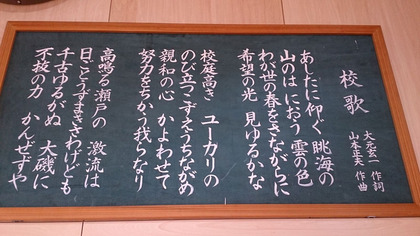 校歌
大元玄一 作詞
山本正夫 作曲
あしたに仰ぐ 眺海の
山のはにおう 雲の色
わが世の春をさながらに
希望の光 見ゆるかな
校庭高き ユーカリの
のび立つこずえうちながめ
親和の心 かよわせて
努力をちかう我らなり
高鳴る瀬戸の 激流は
日ごとうずまきさわげども
千古ゆるがぬ 大磯に
不抜の力 かんぜずや